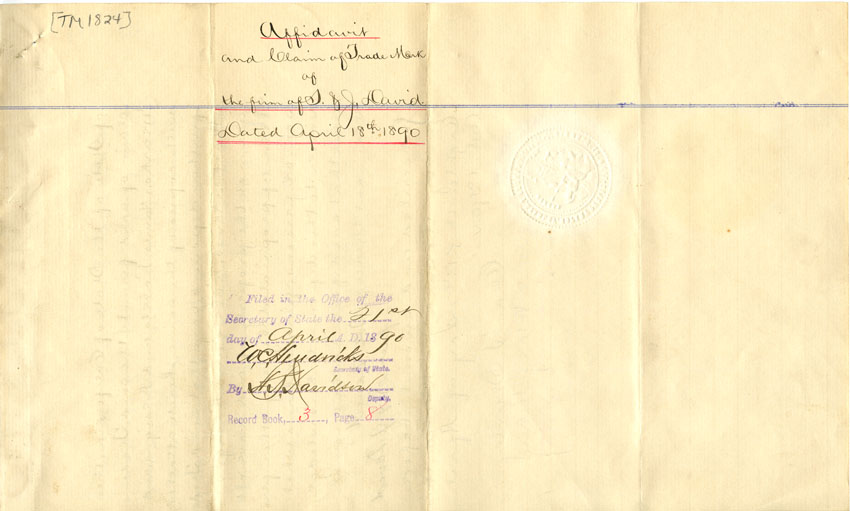 [TM1824]
Affidavit
and Claim of Trade Mark
of
the firm of S. & J. David
Dated April 18th 1890
Filed in the Office of the
Secretary of State the 21st
day of April A.D. 1890
W.C. Hendricks
Secretary of State.
By Davidson
Deputy.
Record Book, 3, Page 8